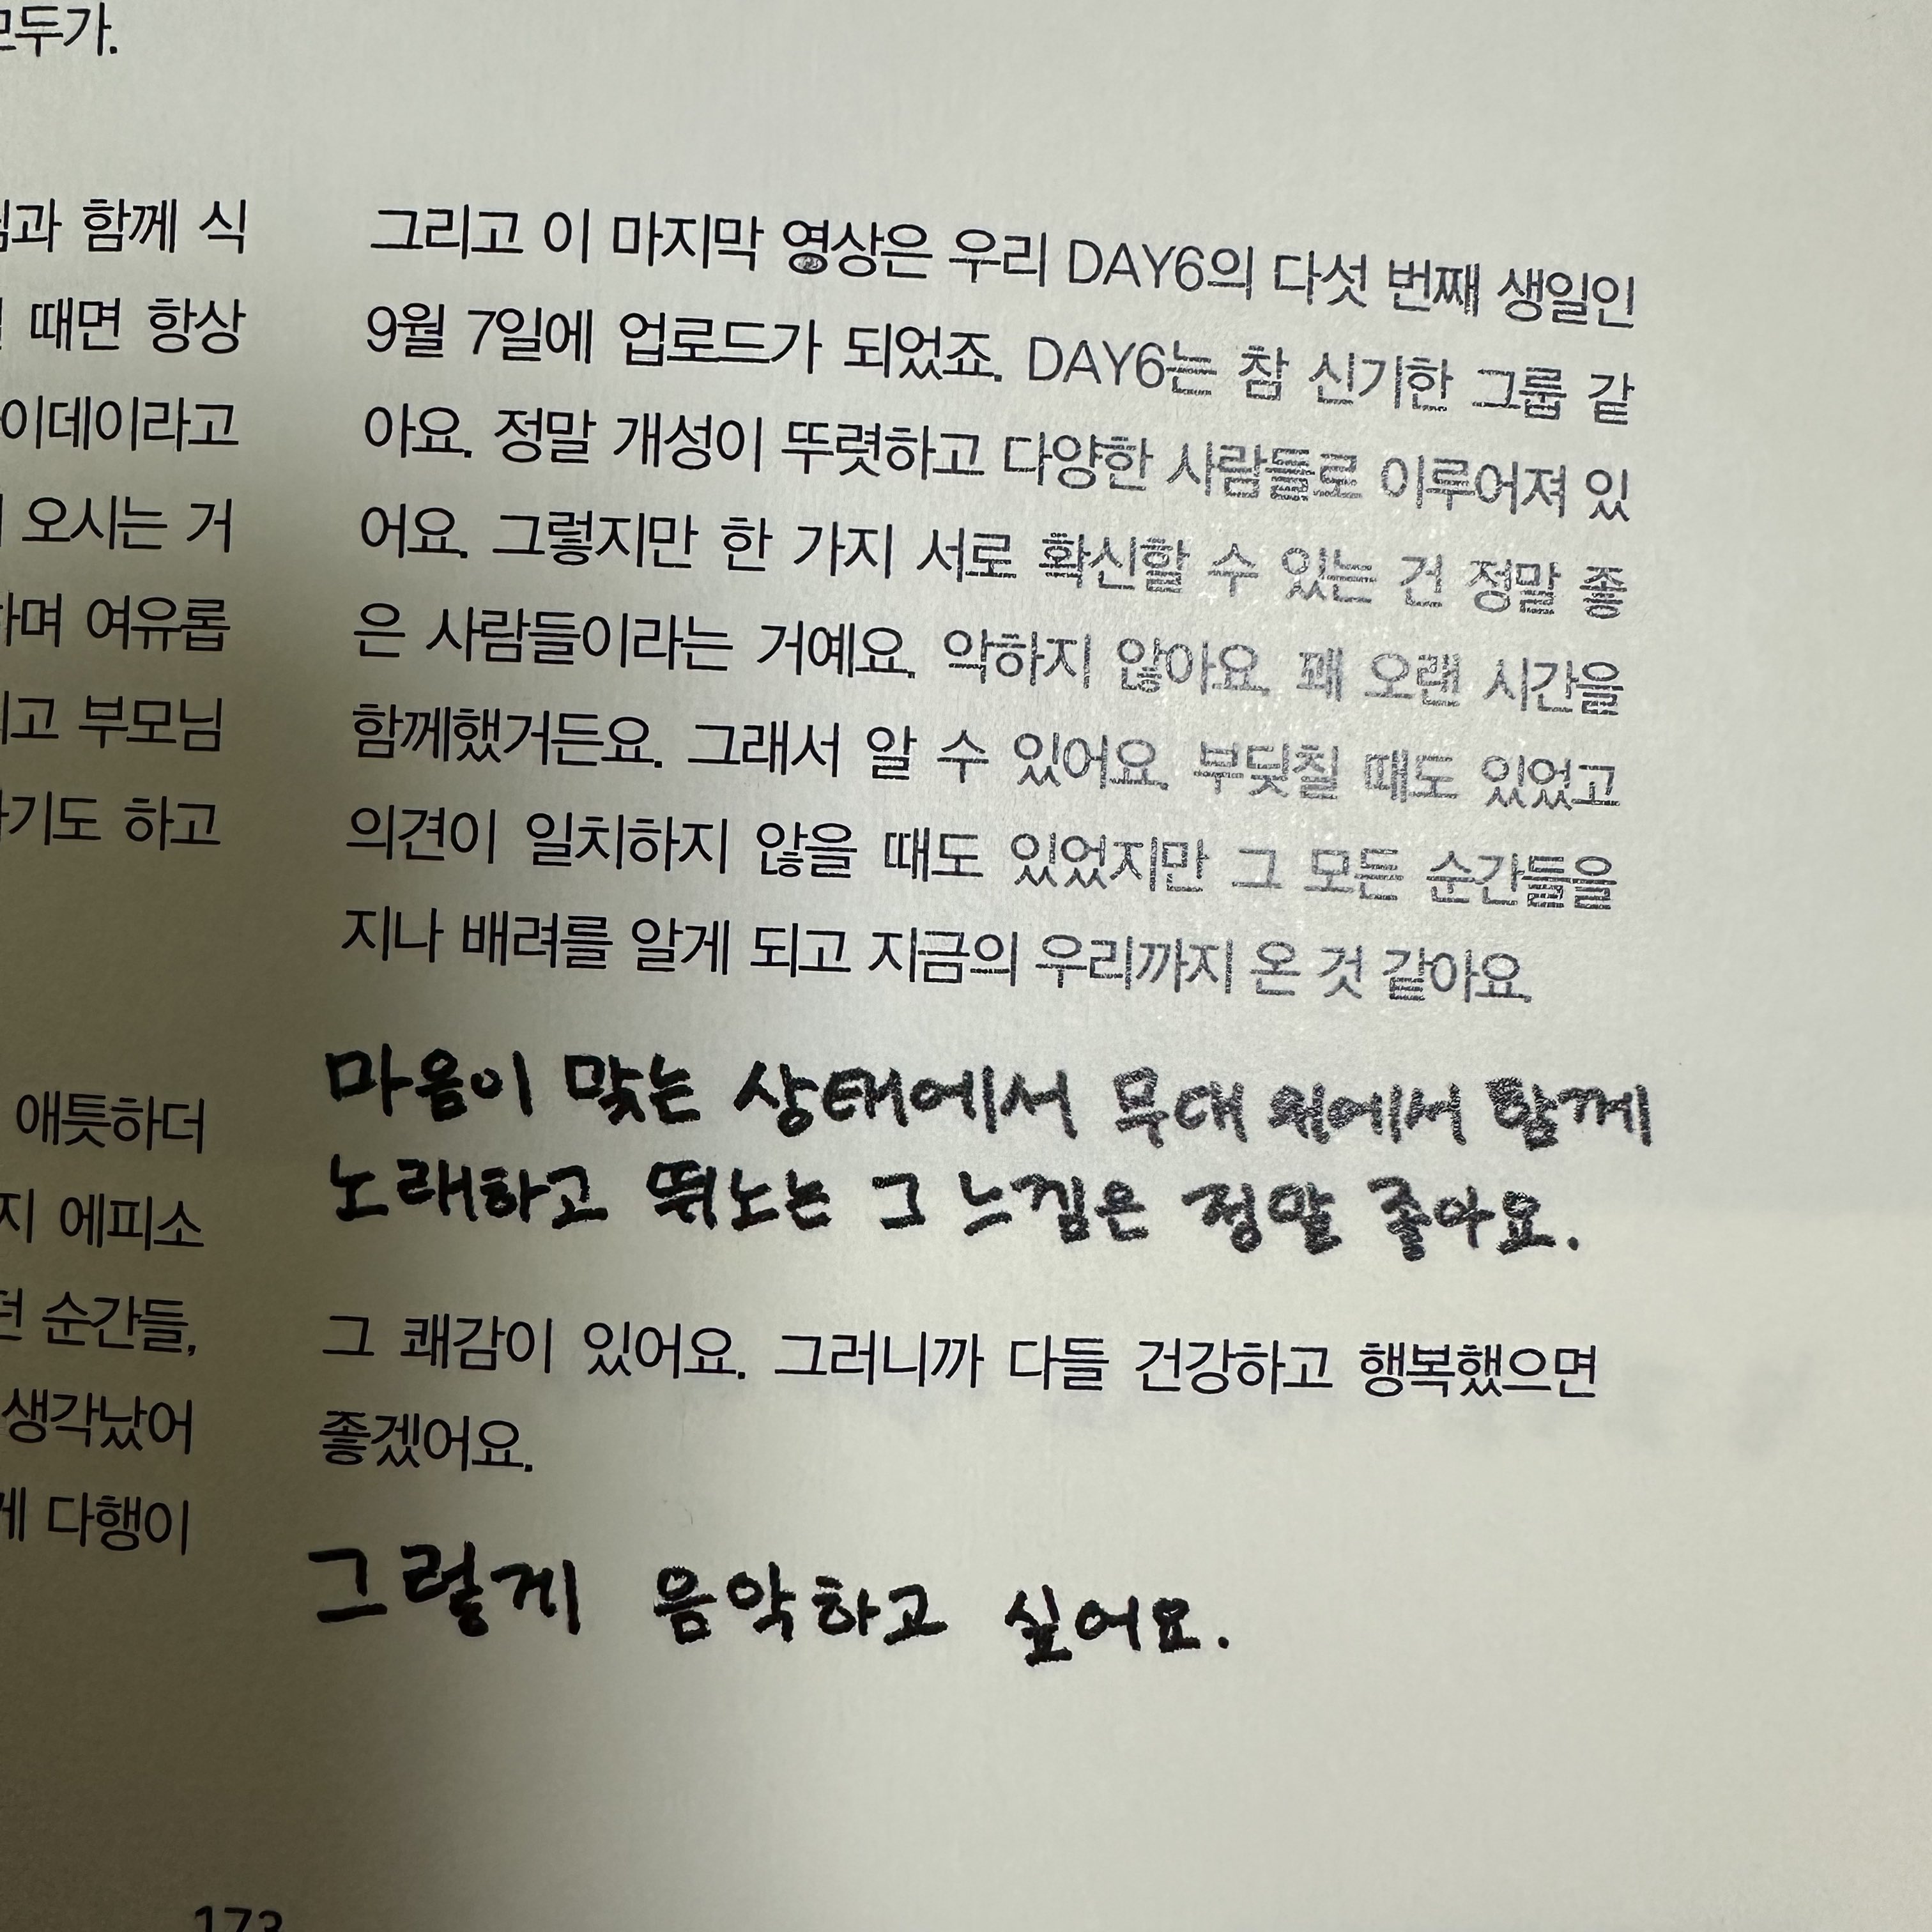 모두가.
함께 식
때면 항상
이데이라고
오시는 거
하며 여유롭
고 부모님
기도 하고
애틋하더
지 에피소
순간들,
생각났어
게 다행이
173
그리고 이 마지막 영상은 우리 DAY6의 다섯 번째 생일인
9월 7일에 업로드가 되었죠. DAY6는 참 신기한 그룹 같
아요. 정말 개성이 뚜렷하고 다양한 사람들로 이루어져 있
어요. 그렇지만 한 가지 서로 확신할 수 있는 건 정말 좋
은 사람들이라는 거예요. 악하지 않아요. 꽤 오랜 시간을
함께했거든요. 그래서 알 수 있어요. 부딪칠 때도 있었고
의견이 일치하지 않을 때도 있었지만 그 모든 순간들을
지나 배려를 알게 되고 지금의 우리까지 온 것 같아요.
마음이 맞는 상태에서 무대 위에서 함께
노래하고 뛰노는 그 느낌은 정말 좋아요.
그 쾌감이 있어요. 그러니까 다들 건강하고 행복했으면
좋겠어요.
그렇게 음악하고 싶어요.